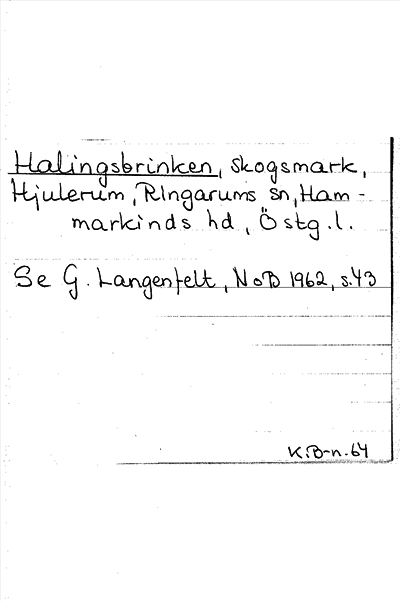 Halingsbrinken, skogsmark,
Hjulerum, Ringarums sn, Ham-
markinds hd, Östg.l.
Se G. Langenfelt, NoB 1962, s.43
K.B-n.64